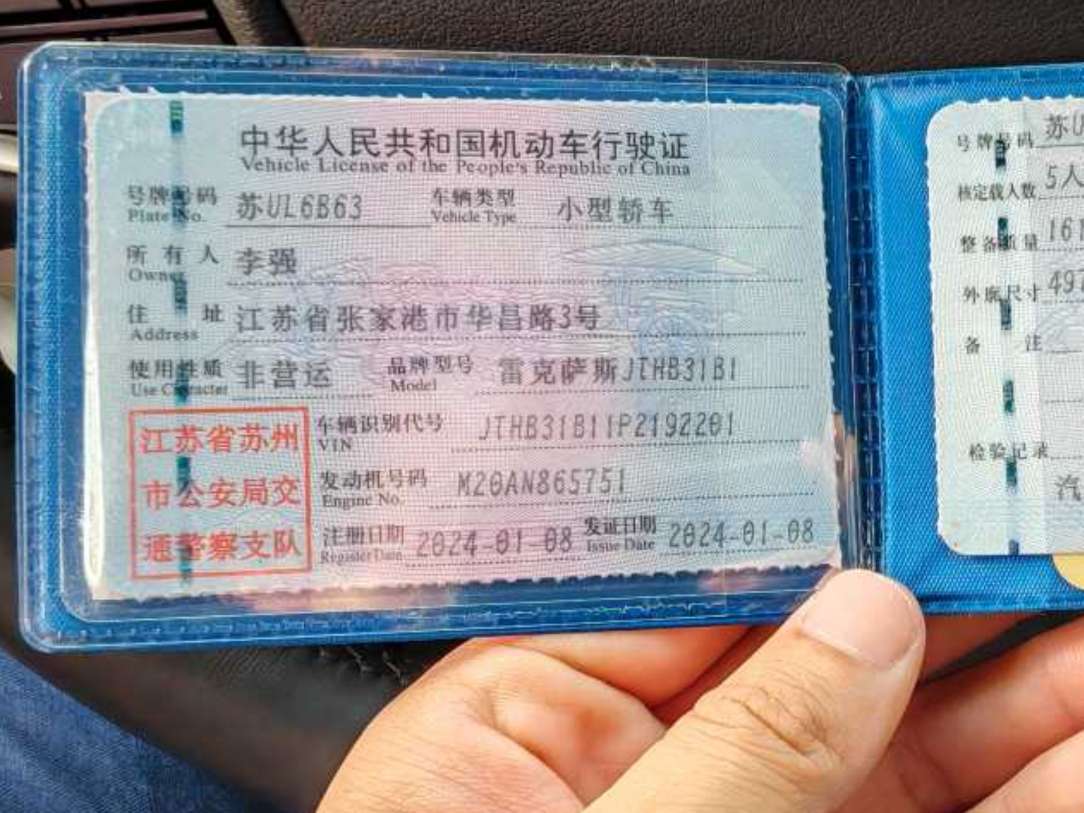 中华人民共和国机动车行驶证
Vehicle License of the People's Republic of China
号牌号码 苏UL6B63 车辆类型 小型轿车
Plate No. Vehicle Type
所有人 李强
Owner
住址 江苏省张家港市华昌路3号
Address
使用性质 非营运 品牌型号 雷克萨斯JTHB31B1
Use Character Model
江苏省苏州
市公安局交
通警察支队
车辆识别代号 JTHB31B11P2192201
VIN
发动机号码 M20AN865751
Engine No.
注册日期 2024-01-08 发证日期 2024-01-08
Register Date Issue Date
号牌号码 苏U
核定载人数 5人
整备质量 161
外廓尺寸 49
备注
检验记录
汽